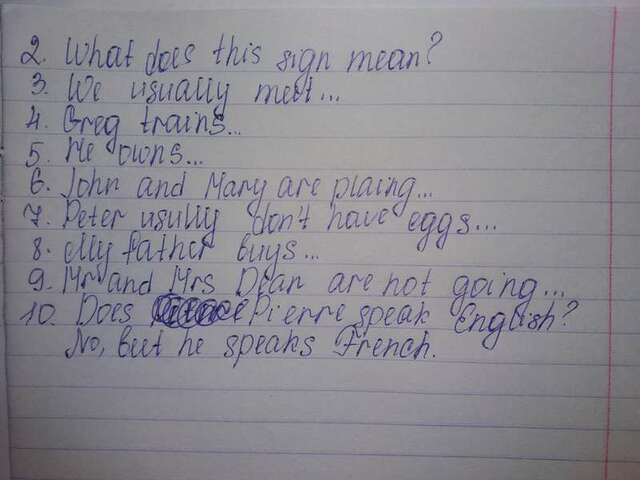 2. What does this sign mean?
3. We usually meet...
4. Greg trains...
5. He owns...
6. John and Mary are plaing...
7. Peter usully don't have eggs...
8. My father buys...
9. Mr and Mrs Dean are not going...
10. Does Pierre speak English?
No, but he speaks French.